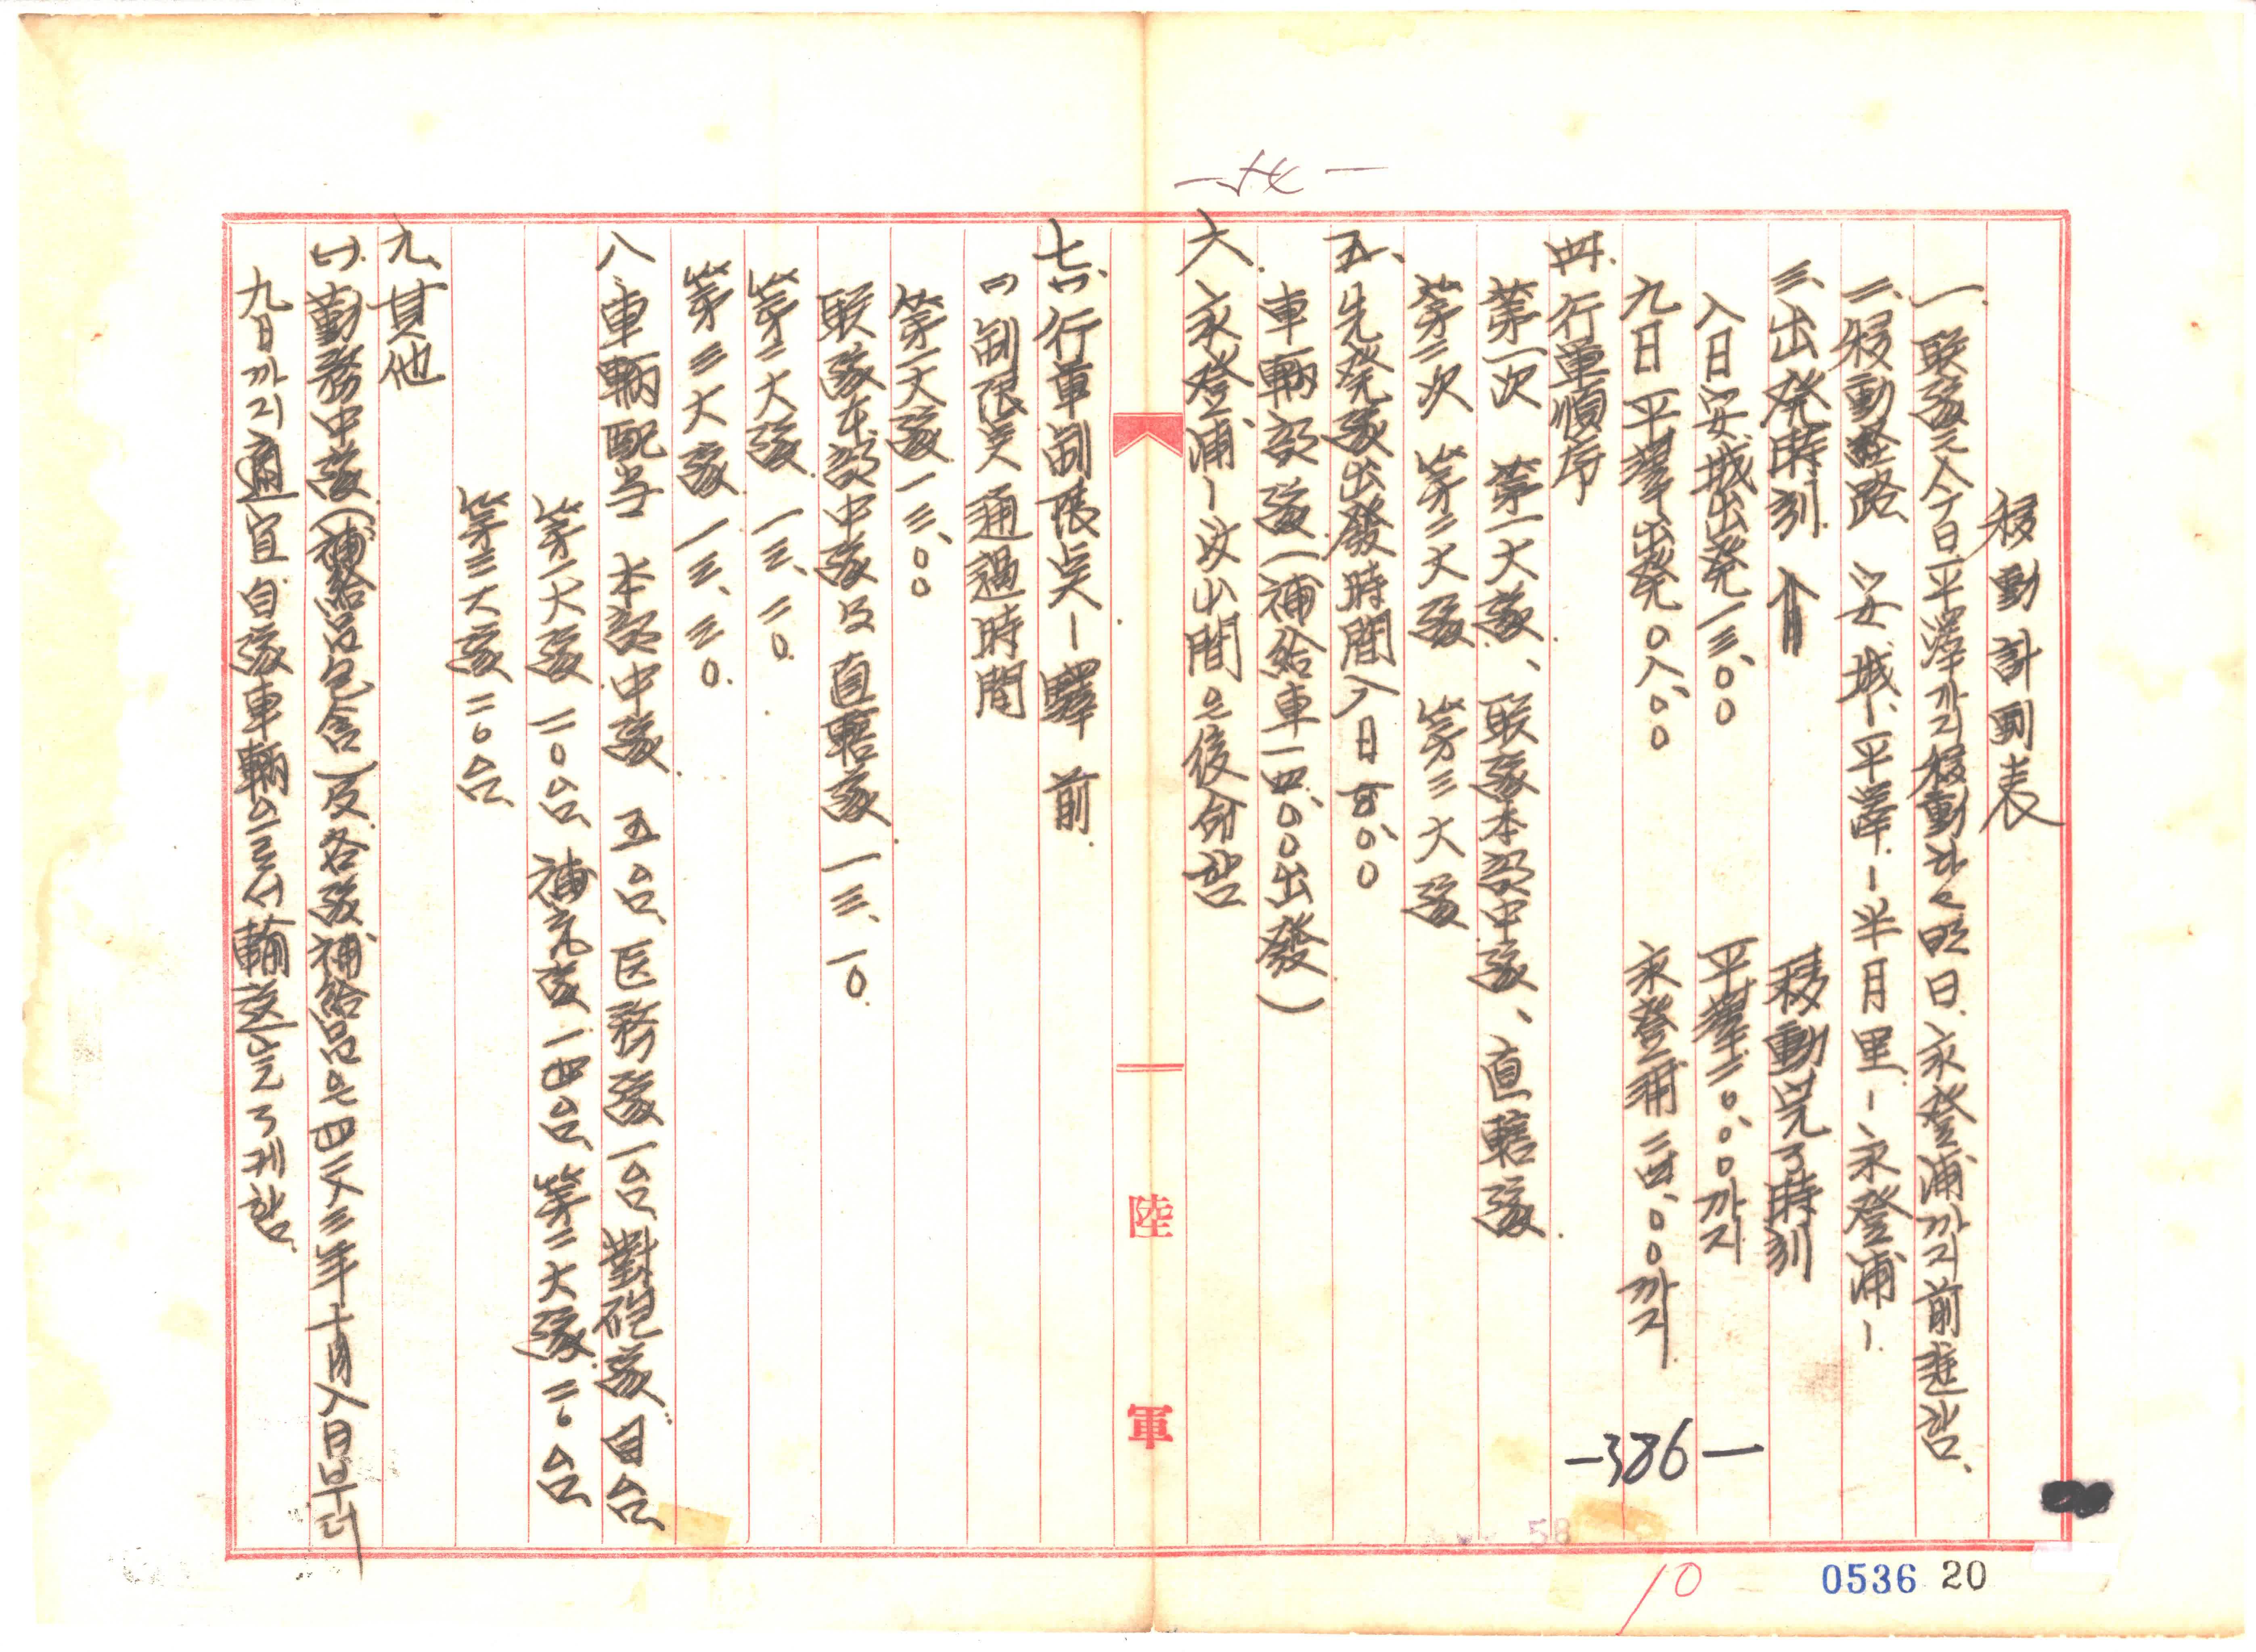 —54—
移動計劃表
一. 联隊는 今日 平澤까지 移動하고 明日 永登浦까지 前進함.
二. 移動経路 安城-平澤-半月里-永登浦-
三. 出発時刻 移動完了時刻
八日 安城出発 一三、00 平澤 二0、00까지
九日 平澤出発 0八、00 永登浦 00까지
四. 行軍順序
第一次 第一大隊、联隊本部中隊、直轄隊.
第二次 第二大隊 第三大隊
五、先発隊出發時間 八日 00
車輌部隊(補給車 一四、00 出發)
六. 永登浦-汶山間은 後命함
七. 行軍制限点-驛前.
(一) 制限点 通過時間
第一大隊 一三、00
联隊本部中隊及 直轄隊 一三、一0.
第二大隊. 一三、二0.
第三大隊. 一三、三0.
八 車輌配当 本部中隊 五台、医務隊 一台、對砲隊 台
第一大隊 二0台、補充隊 一四台、第二大隊. 二0台
第三大隊 二0台
九、其他
(一). 勤務中隊(補給品包含)及 各隊補給品은 四二八三年十月八日부터
九日까지 適宜 自隊車輌으로서 輸送完了케함.
陸軍
—386—
58
10
0536 20